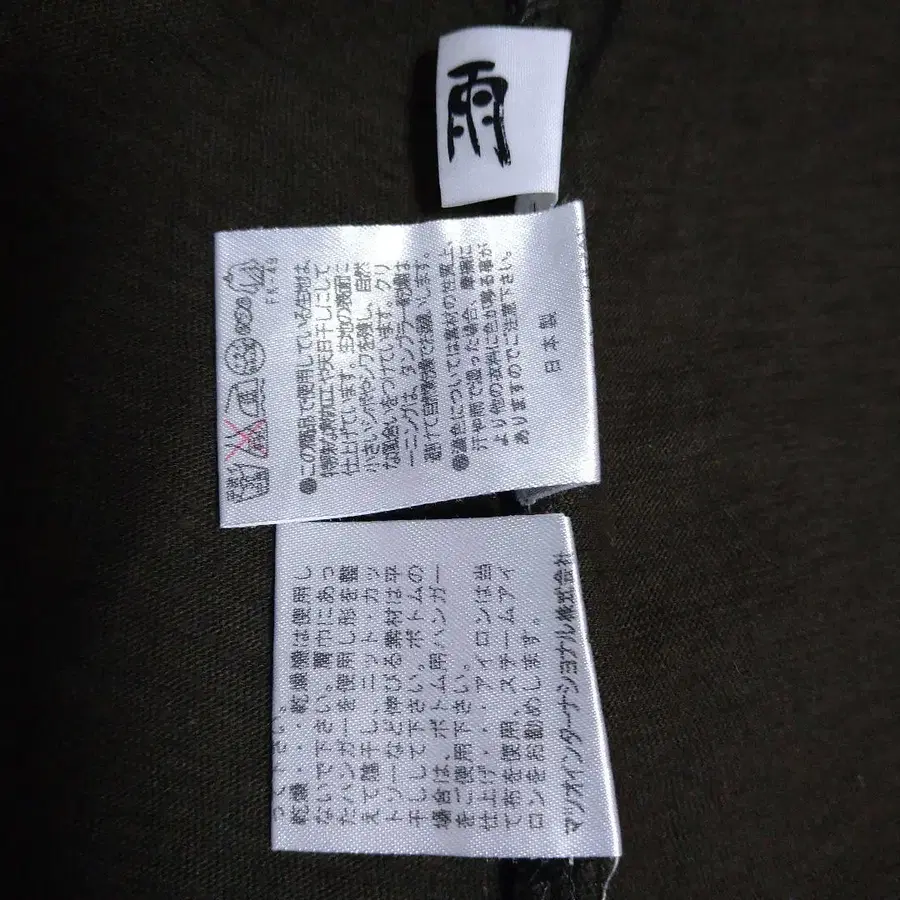 雨
FK-49
●この商品で使用している生地は、
特殊な製物加工や天日干しにして
仕上げています。生地の表面に
小さいシボやシワを残し、自然
な風合いをつけています。クリ
ーニングは、タンブラー乾燥は
避けて自然乾燥でお願いします。
●濃色については素材の性質上、
汗和雨で湿った場合、摩擦に
より他の衣料に色が移る事が
ありますのでご注意下さい。
日本製
って下さい。
乾燥・・乾燥機は使用し
ないで下さい。肩巾にあっ
たハンガーを使用し形を整
えて陰干し、ニット・カッ
トソーなど伸びる素材は平
干しして下さい。ボトムの
場合は、ボトム用ハンガー
をご使用下さい。
仕上げ・・アイロンは当
て布を使用、スチームアイ
ロンをお勧めします。
マツオインターナショナル株式会社